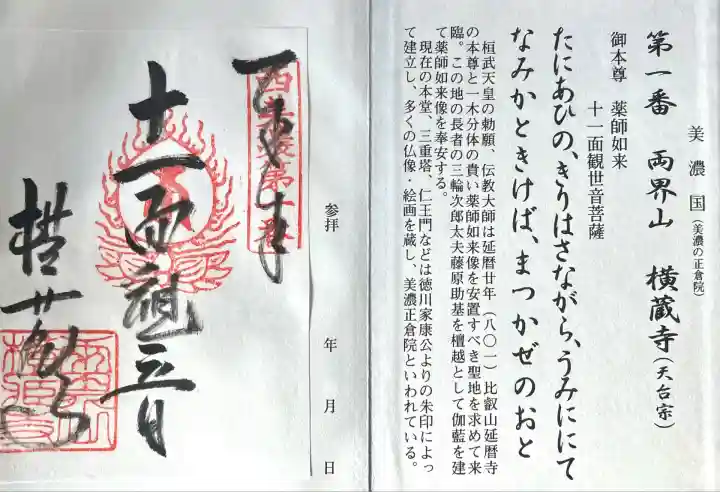 美濃国(美濃の正倉院)
第一番 両界山 横蔵寺(天台宗)
御本尊 薬師如来
十一面観世音菩薩
たにあひの、きりはさながら、うみににて
なみかときけば、まつかぜのおと
桓武天皇の勅願、伝教大師は延暦廿年(八〇一)比叡山延暦寺
の本尊と一木分体の貴い薬師如来像を安置すべき聖地を求めて来
臨。この地の長者の三輪次郎太夫藤原助基を檀越として伽藍を建
て薬師如来像を奉安する。
現在の本堂、三重塔、仁王門などは徳川家康公よりの朱印によっ
て建立し、多くの仏像・絵画を蔵し、美濃正倉院といわれている。
参拝 年 月 日
十一面